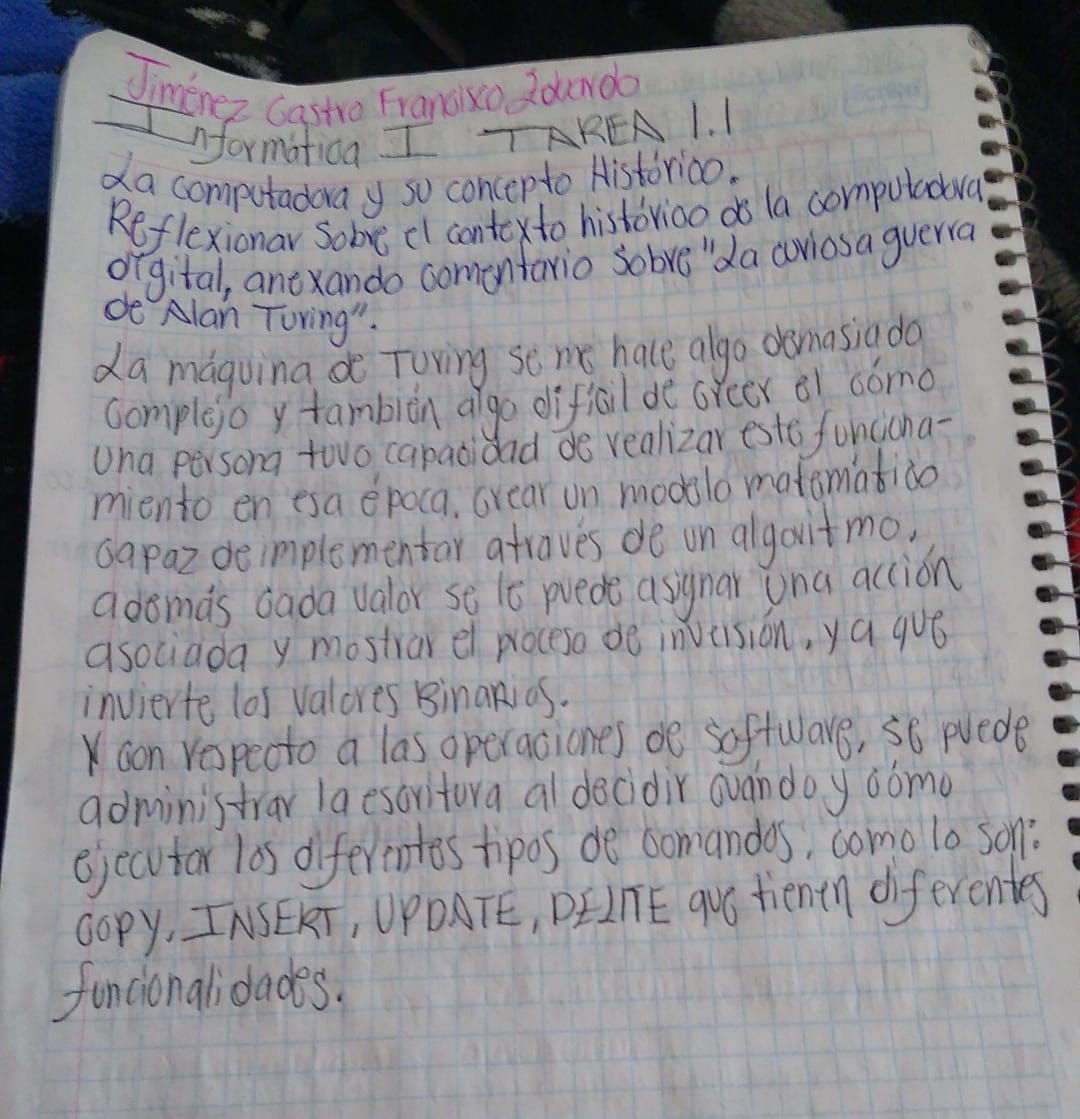 Jiménez Castro Francisco Eduardo
Informática I TAREA 1.1
La computadora y su concepto Histórico.
Reflexionar Sobre el contexto histórico de la computadora
digital, anexando comentario sobre "La curiosa guerra
de Alan Turing".
La máquina de Turing se me hace algo demasiado
complejo y también algo difícil de creer el cómo
una persona tuvo capacidad de realizar este funciona-
miento en esa época, crear un modelo matemático
capaz de implementar através de un algoritmo,
además cada valor se le puede asignar una acción
asociada y mostrar el proceso de inversión, ya que
invierte los valores Binarios.
Y con respecto a las operaciones de software, se puede
administrar la escritura al decidir cuándo y cómo
ejecutar los diferentes tipos de comandos; como lo son:
COPY, INSERT, UPDATE, DELITE que tienen diferentes
funcionalidades.